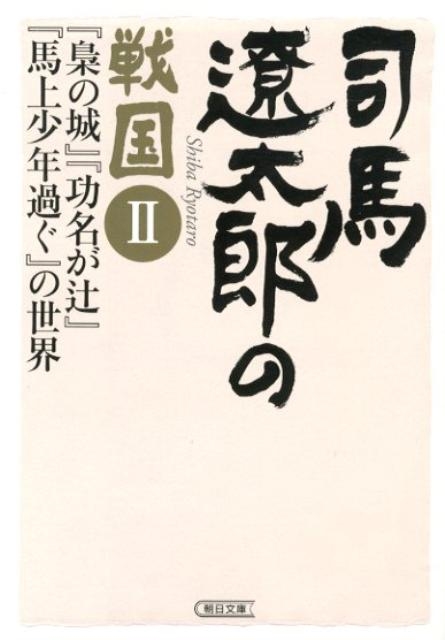 司馬
遼太郎の
Shiba Ryotaro
戦国
Ⅱ
『梟の城』『功名が辻』
『馬上少年過ぐ』の世界
朝日文庫